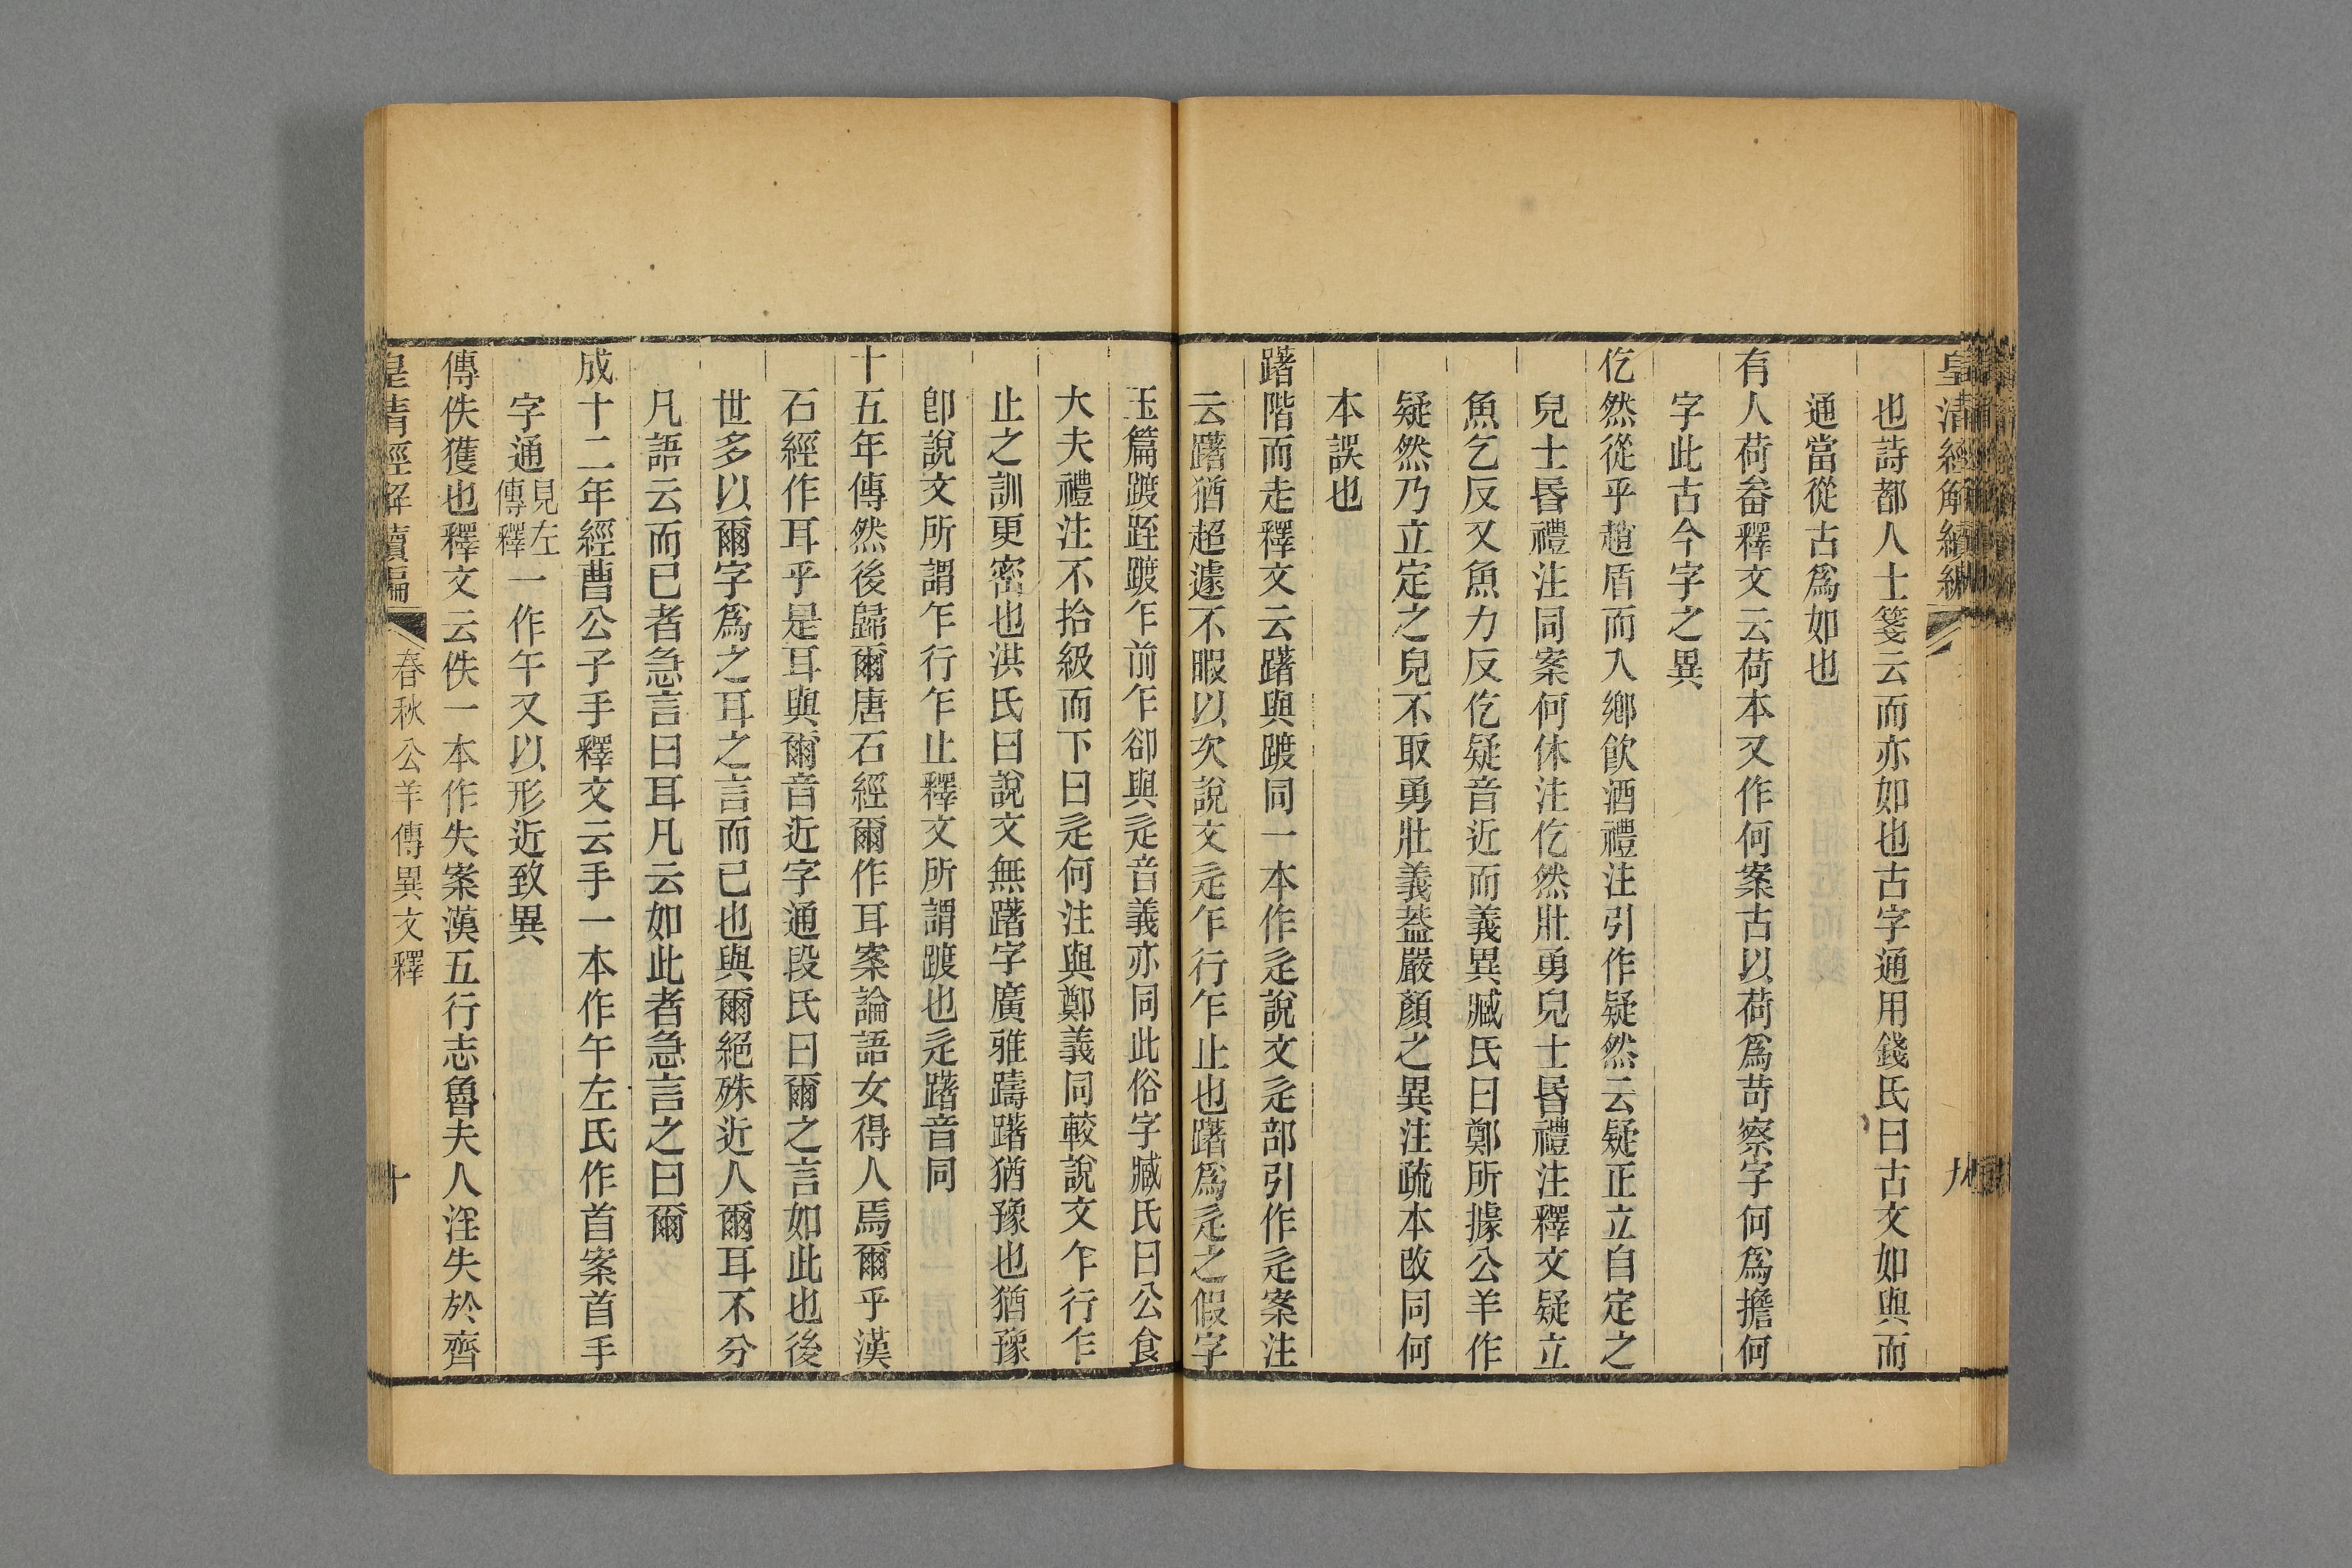 皇清經解續編
九
也詩都人士箋云而亦如也古字通用錢氏曰古文如與而
通當從古爲如也
有人荷畚釋文云荷本又作何案古以荷爲苛察字何爲擔何
字此古今字之異
仡然從乎趙盾而入鄉飮酒禮注引作疑然云疑正立自定之
皃士昏禮注同案何休注仡然壯勇皃士昏禮注釋文疑立
魚乞反又魚力反仡疑音近而義異臧氏曰鄭所據公羊作
疑然乃立定之皃不取勇壯義葢嚴顏之異注疏本改同何
本誤也
躇階而走釋文云躇與踱同一本作辵說文辵部引作辵案注
云躇猶超遽不暇以次說文辵乍行乍止也躇爲辵之假字
玉篇踱跮踱乍前乍卻與辵音義亦同此俗字臧氏曰公食
大夫禮注不拾級而下曰辵何注與鄭義同較說文乍行乍
止之訓更密也洪氏曰說文無躇字廣雅躊躇猶豫也猶豫
卽說文所謂乍行乍止釋文所謂踱也辵躇音同
十五年傳然後歸爾唐石經爾作耳案論語女得人焉爾乎漢
石經作耳乎是耳與爾音近字通段氏曰爾之言如此也後
世多以爾字爲之耳之言而已也與爾絕殊近人爾耳不分
凡語云而已者急言曰耳凡云如此者急言之曰爾
成十二年經曹公子手釋文云手一本作午左氏作首案首手
字通見左傳釋一作午又以形近致異
傳佚獲也釋文云佚一本作失案漢五行志魯夫人淫失於齊
皇清經解續編
春秋公羊傳異文釋
十